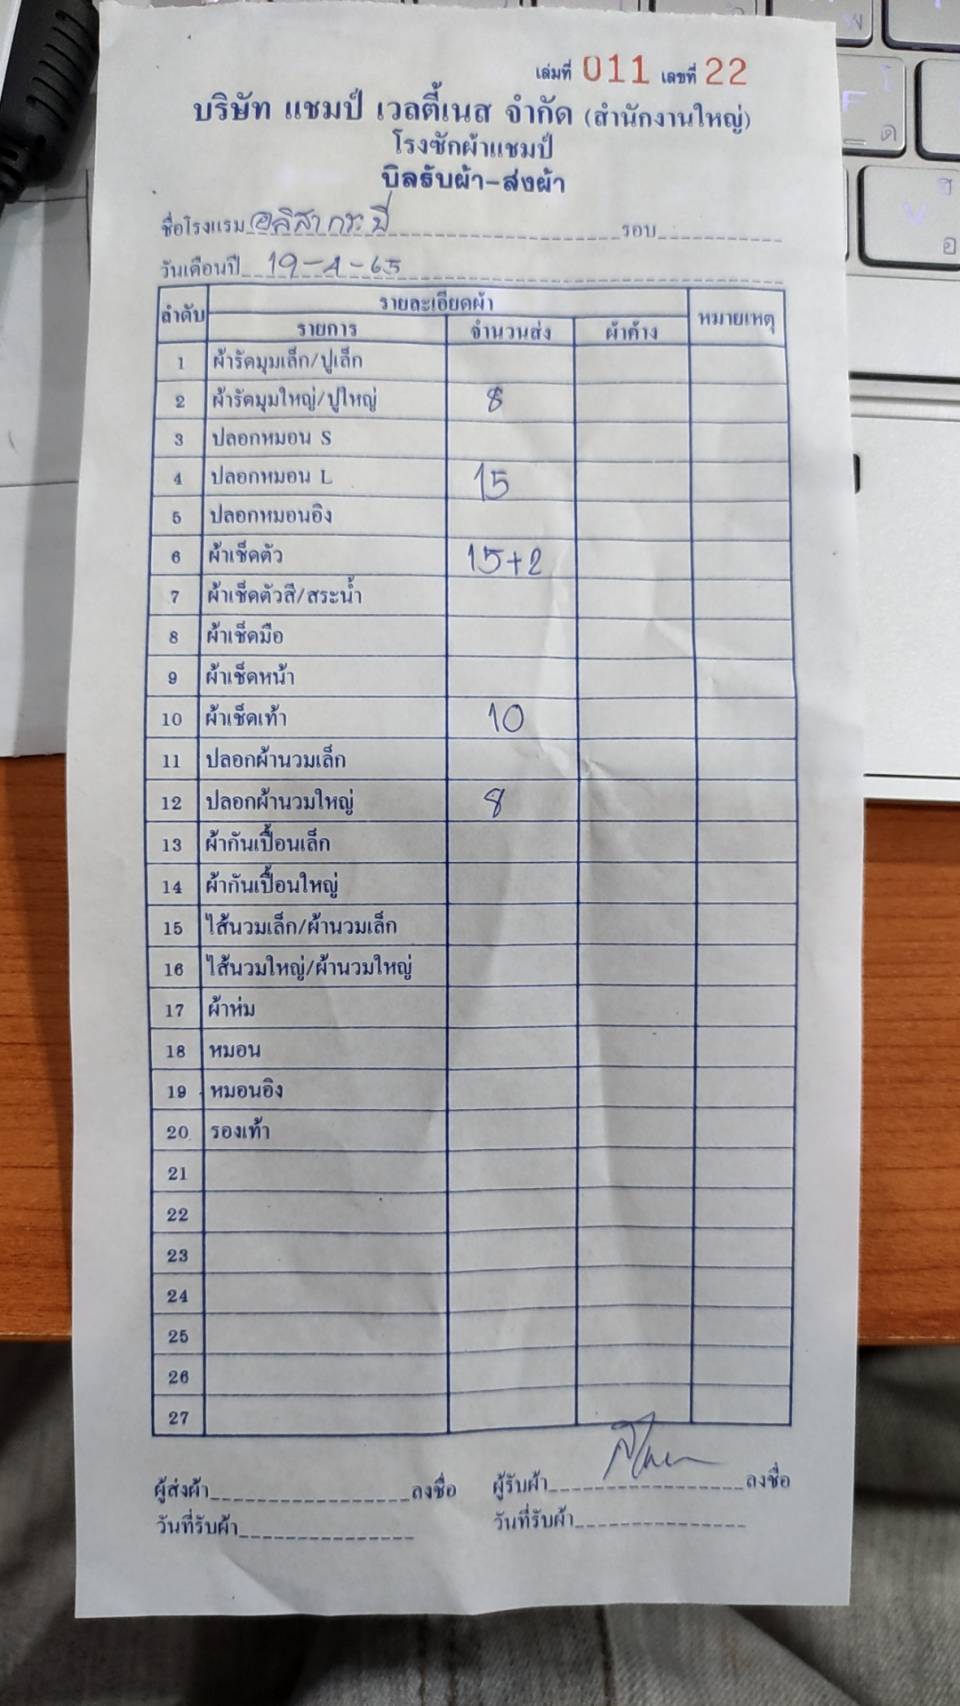 เล่มที่ 011 เลขที่ 22
บริษัท แชมป์ เวลตี้เนส จำกัด (สำนักงานใหญ่)
โรงซักผ้าแชมป์
บิลรับผ้า-ส่งผ้า
ชื่อโรงแรม อลิสากระบี่ รอบ
วันเดือนปี 19-4-65
ลำดับ รายละเอียดผ้า หมายเหตุ
รายการ จำนวนส่ง ผ้าค้าง
1 ผ้ารัดมุมเล็ก/ปูเล็ก
2 ผ้ารัดมุมใหญ่/ปูใหญ่ 8
3 ปลอกหมอน S
4 ปลอกหมอน L 15
5 ปลอกหมอนอิง
6 ผ้าเช็ดตัว 15+2
7 ผ้าเช็ดตัวสี/สระน้ำ
8 ผ้าเช็ดมือ
9 ผ้าเช็ดหน้า
10 ผ้าเช็ดเท้า 10
11 ปลอกผ้านวมเล็ก
12 ปลอกผ้านวมใหญ่ 8
13 ผ้ากันเปื้อนเล็ก
14 ผ้ากันเปื้อนใหญ่
15 ไส้นวมเล็ก/ผ้านวมเล็ก
16 ไส้นวมใหญ่/ผ้านวมใหญ่
17 ผ้าห่ม
18 หมอน
19 หมอนอิง
20 รองเท้า
21
22
23
24
25
26
27
ผู้ส่งผ้า ลงชื่อ ผู้รับผ้า ลงชื่อ
วันที่รับผ้า วันที่รับผ้า